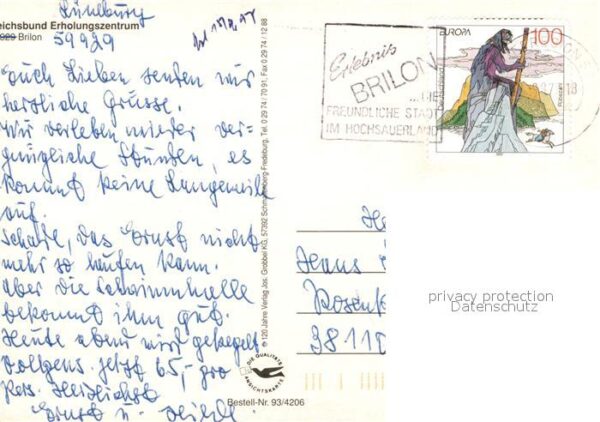 Lüneburg
eichsbund Erholungszentrum
59929 Brilon
59929
Euch Lieben senden wir
herzliche Grüsse.
Wir verleben wieder ver-
gnügliche Stunden, es
kommt keine Langeweile
auf.
Schade, das Ernst nicht
mehr so laufen kann.
Aber die Schwimmhalle
bekommt ihm gut.
Heute abend wird gekegelt
Vollpens. jetzt 65,- pro
Pers. Herzlichst
Ernst u.
© 120 Jahre Verlag Jos. Grobbel KG, 57392 Schmallenberg-Fredeburg, Tel. 0 29 74 / 70 91, Fax 0 29 74 / 12 88
Erlebnis
BRILON
...DIE
FREUNDLICHE STADT
IM HOCHSAUERLAND
EUROPA
100
Deutschland
18
Hans
Rosen
38110
privacy protection
Datenschutz
DIE QUALITÄTS
ANSICHTSKARTE
Bestell-Nr. 93/4206